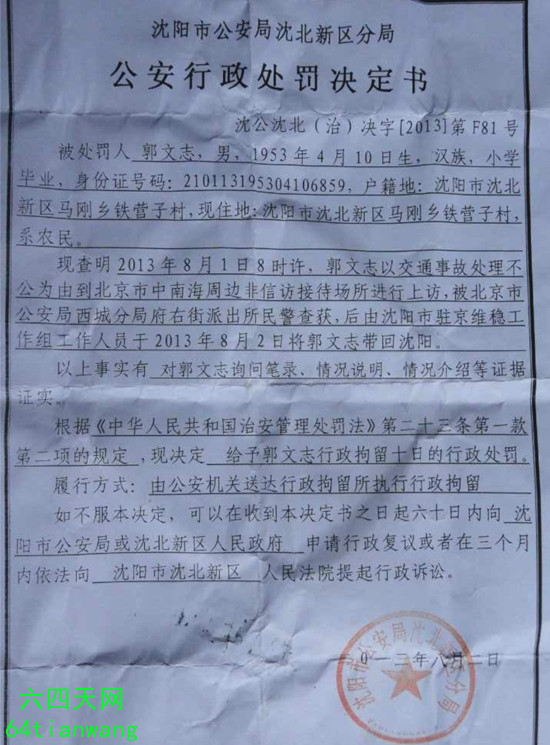 沈阳市公安局沈北新区分局
公安行政处罚决定书
沈公沈北(治)决字[2013]第F81号
被处罚人 郭文志,男,1953年4月10日生,汉族,小学
毕业,身份证号码:210113195304106859,户籍地:沈阳市沈北
新区马刚乡铁营子村,现住地:沈阳市沈北新区马刚乡铁营子村,
系农民。
现查明 2013年8月1日8时许,郭文志以交通事故处理不
公为由到北京市中南海周边非信访接待场所进行上访,被北京市
公安局西城分局府右街派出所民警查获,后由沈阳市驻京维稳工
作组工作人员于2013年8月2日将郭文志带回沈阳。
以上事实有 对郭文志询问笔录、情况说明、情况介绍等证据
证实。
根据《中华人民共和国治安管理处罚法》第二十三条第一款
第二项的规定,现决定 给予郭文志行政拘留十日的行政处罚。
履行方式:由公安机关送达行政拘留所执行行政拘留
如不服本决定,可以在收到本决定书之日起六十日内向 沈
阳市公安局或沈北新区人民政府 申请行政复议或者在三个月
内依法向 沈阳市沈北新区 人民法院提起行政诉讼。
沈阳市公安局沈北新区分局
一三年八月二日
六四天网
64tianwang